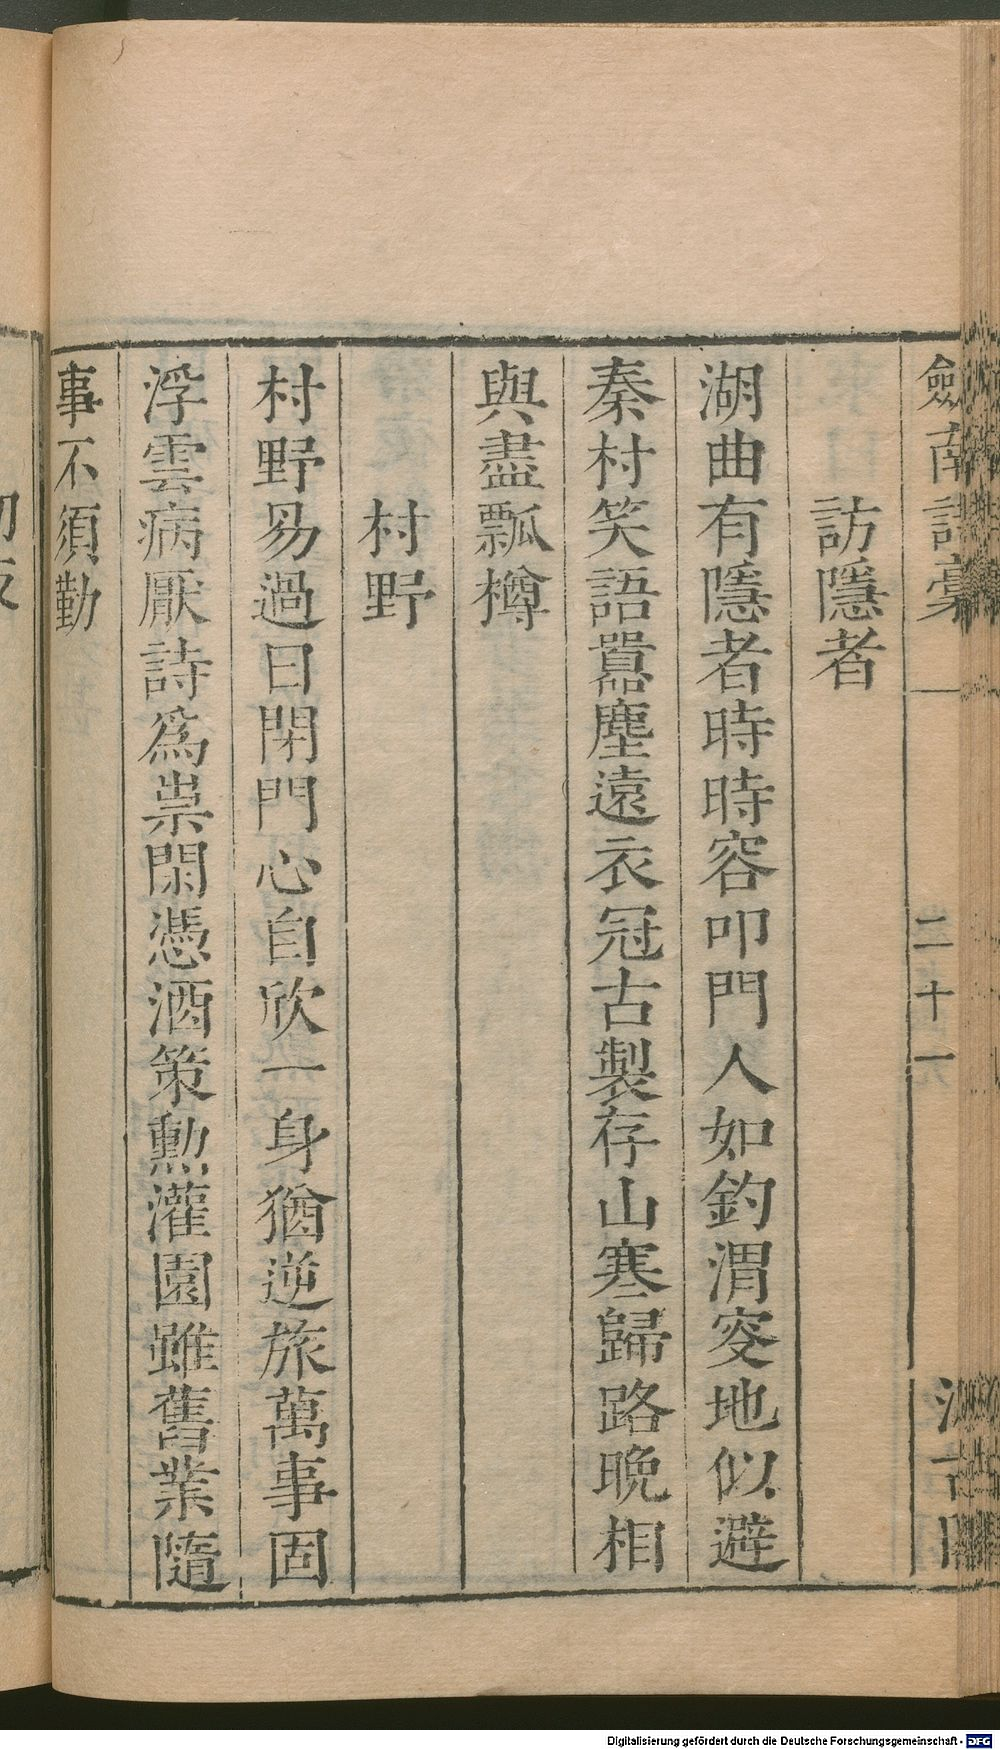 劍南詩藁
二十一
訪隱者
湖曲有隱者時時容叩門人如釣渭叟地似避
秦村笑語囂塵遠衣冠古製存山寒歸路晚相
與盡瓢樽
村野
村野易過日閉門心自欣一身猶逆旅萬事固
浮雲病厭詩爲祟閑憑酒策勲灌園雖舊業隨
事不須勤
Digitalisierung gefördert durch die Deutsche Forschungsgemeinschaft - DFG